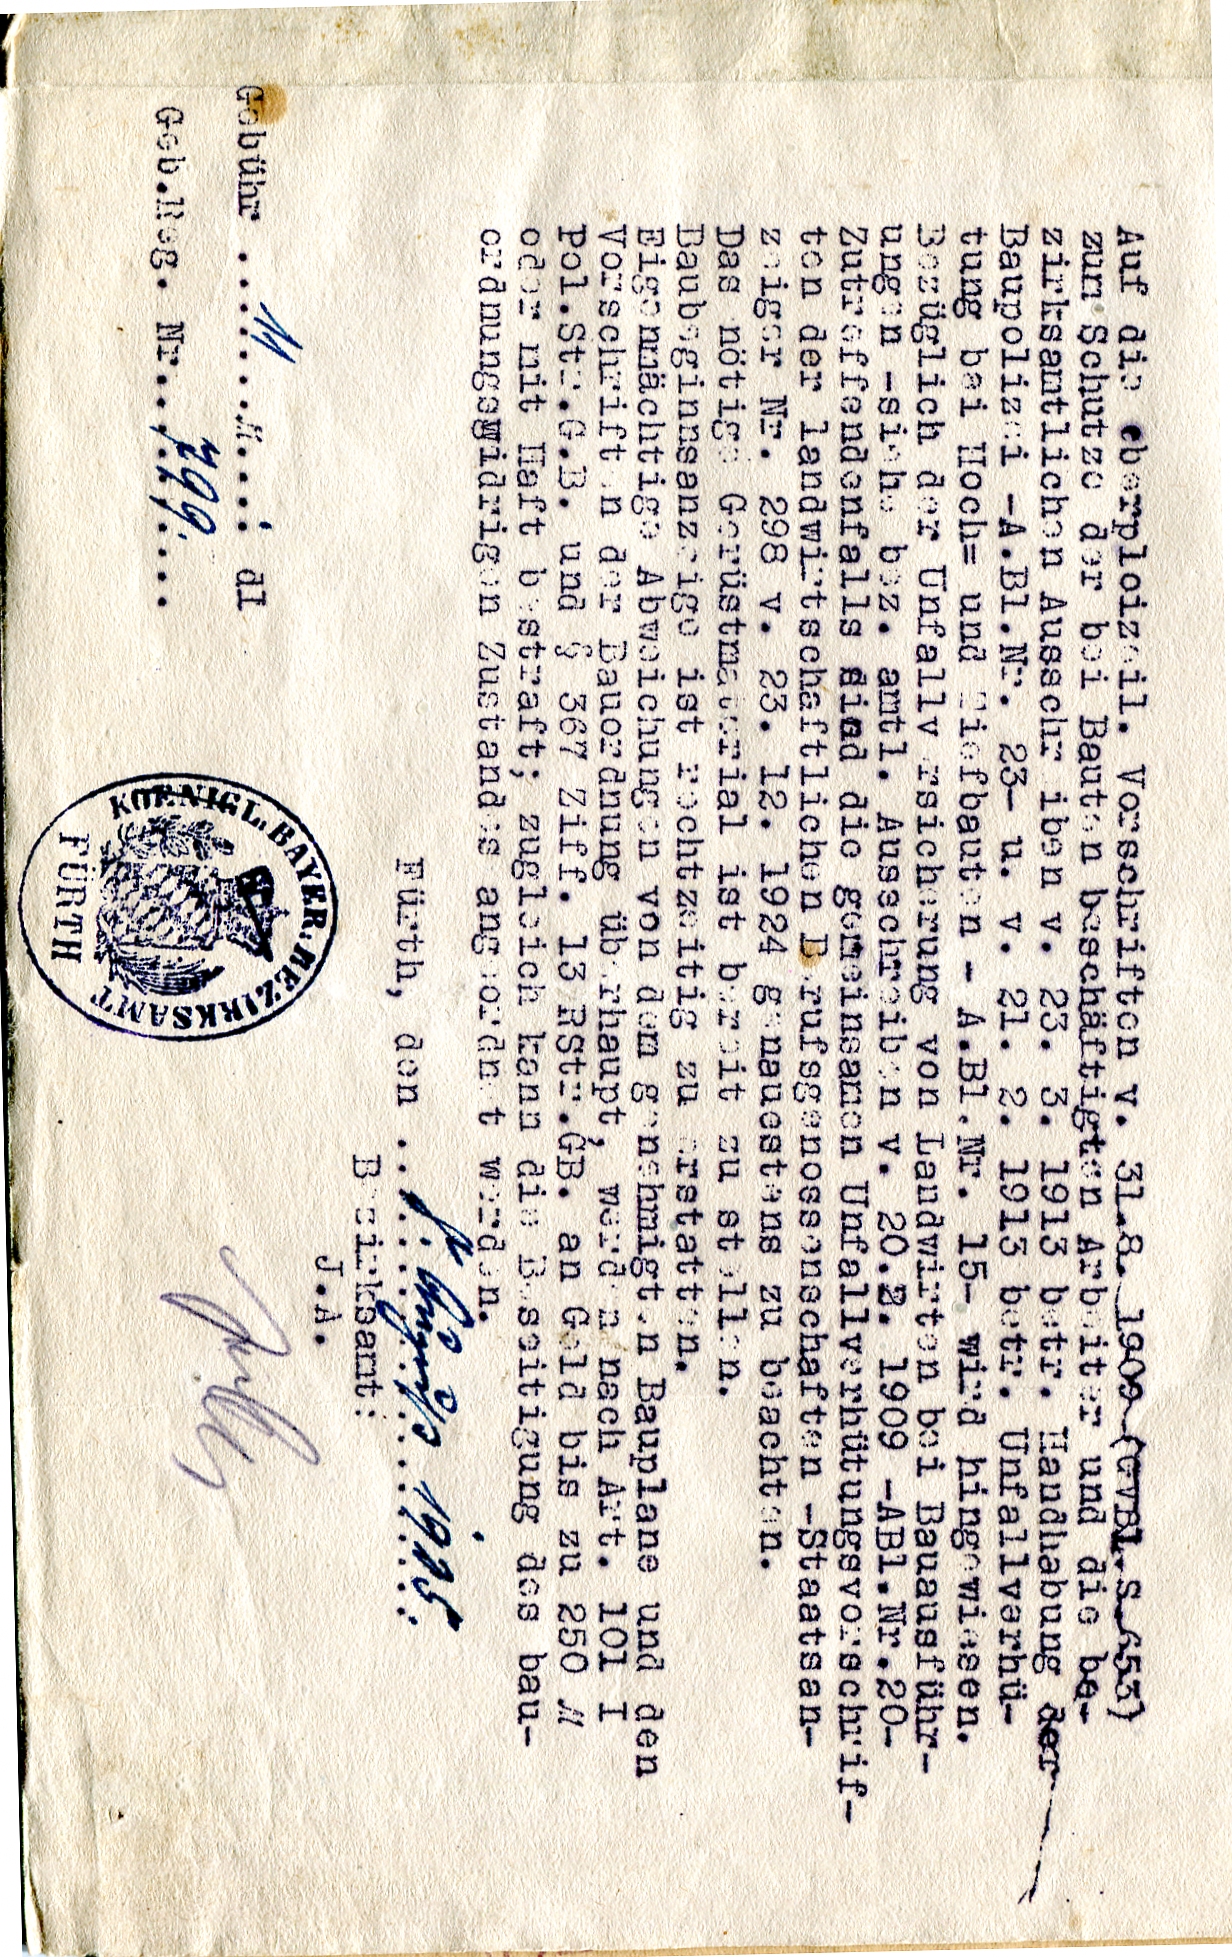 Auf die oberploizeil. Vorschriften v. 31.8. 1909 (GVBl.S.653)
zum Schutze der bei Bauten beschäftigten Arbeiter und die be-
zirksamtlichen Ausschreiben v. 23. 3. 1913 betr. Handhabung der
Baupolizei -A.Bl.Nr. 23- u. v. 21. 2. 1913 betr. Unfallverhü-
tung bei Hoch= und Tiefbauten - A.Bl.Nr. 15- wird hingewiesen.
Bezüglich der Unfallversicherung von Landwirten bei Bauausführ-
ungen -siehe bez. amtl. Ausschreiben v. 20.2. 1909 -ABl.Nr.20-
Zutreffendenfalls sind die gemeinsamen Unfallverhütungsvorschrif-
ten der landwirtschaftlichen Berufsgenossenschaften -Staatsan-
zeiger Nr. 298 v. 23. 12. 1924 genauestens zu beachten.
Das nötige Gerüstmaterial ist bereit zu stellen.
Baubeginnsanzeige ist rechtzeitig zu erstatten.
Eigenmächtige Abweichungen von dem genehmigten Bauplane und den
Vorschriften der Bauordnung überhaupt, werden nach Art. 101 I
Pol.Str.G.B. und § 367 Ziff. 13 RStr.GB. an Geld bis zu 250 M
oder mit Haft bestraft; zugleich kann die Beseitigung des bau-
ordnungswidrigen Zustandes angeordnet werden.
Fürth, den ... August 1925.
Bezirksamt:
J.A.
Gebühr ... 11 ... M ... dl
Geb.Reg. Nr. ... 799. ...
KOENIGL. BAYER. BEZIRKSAMT
FÜRTH